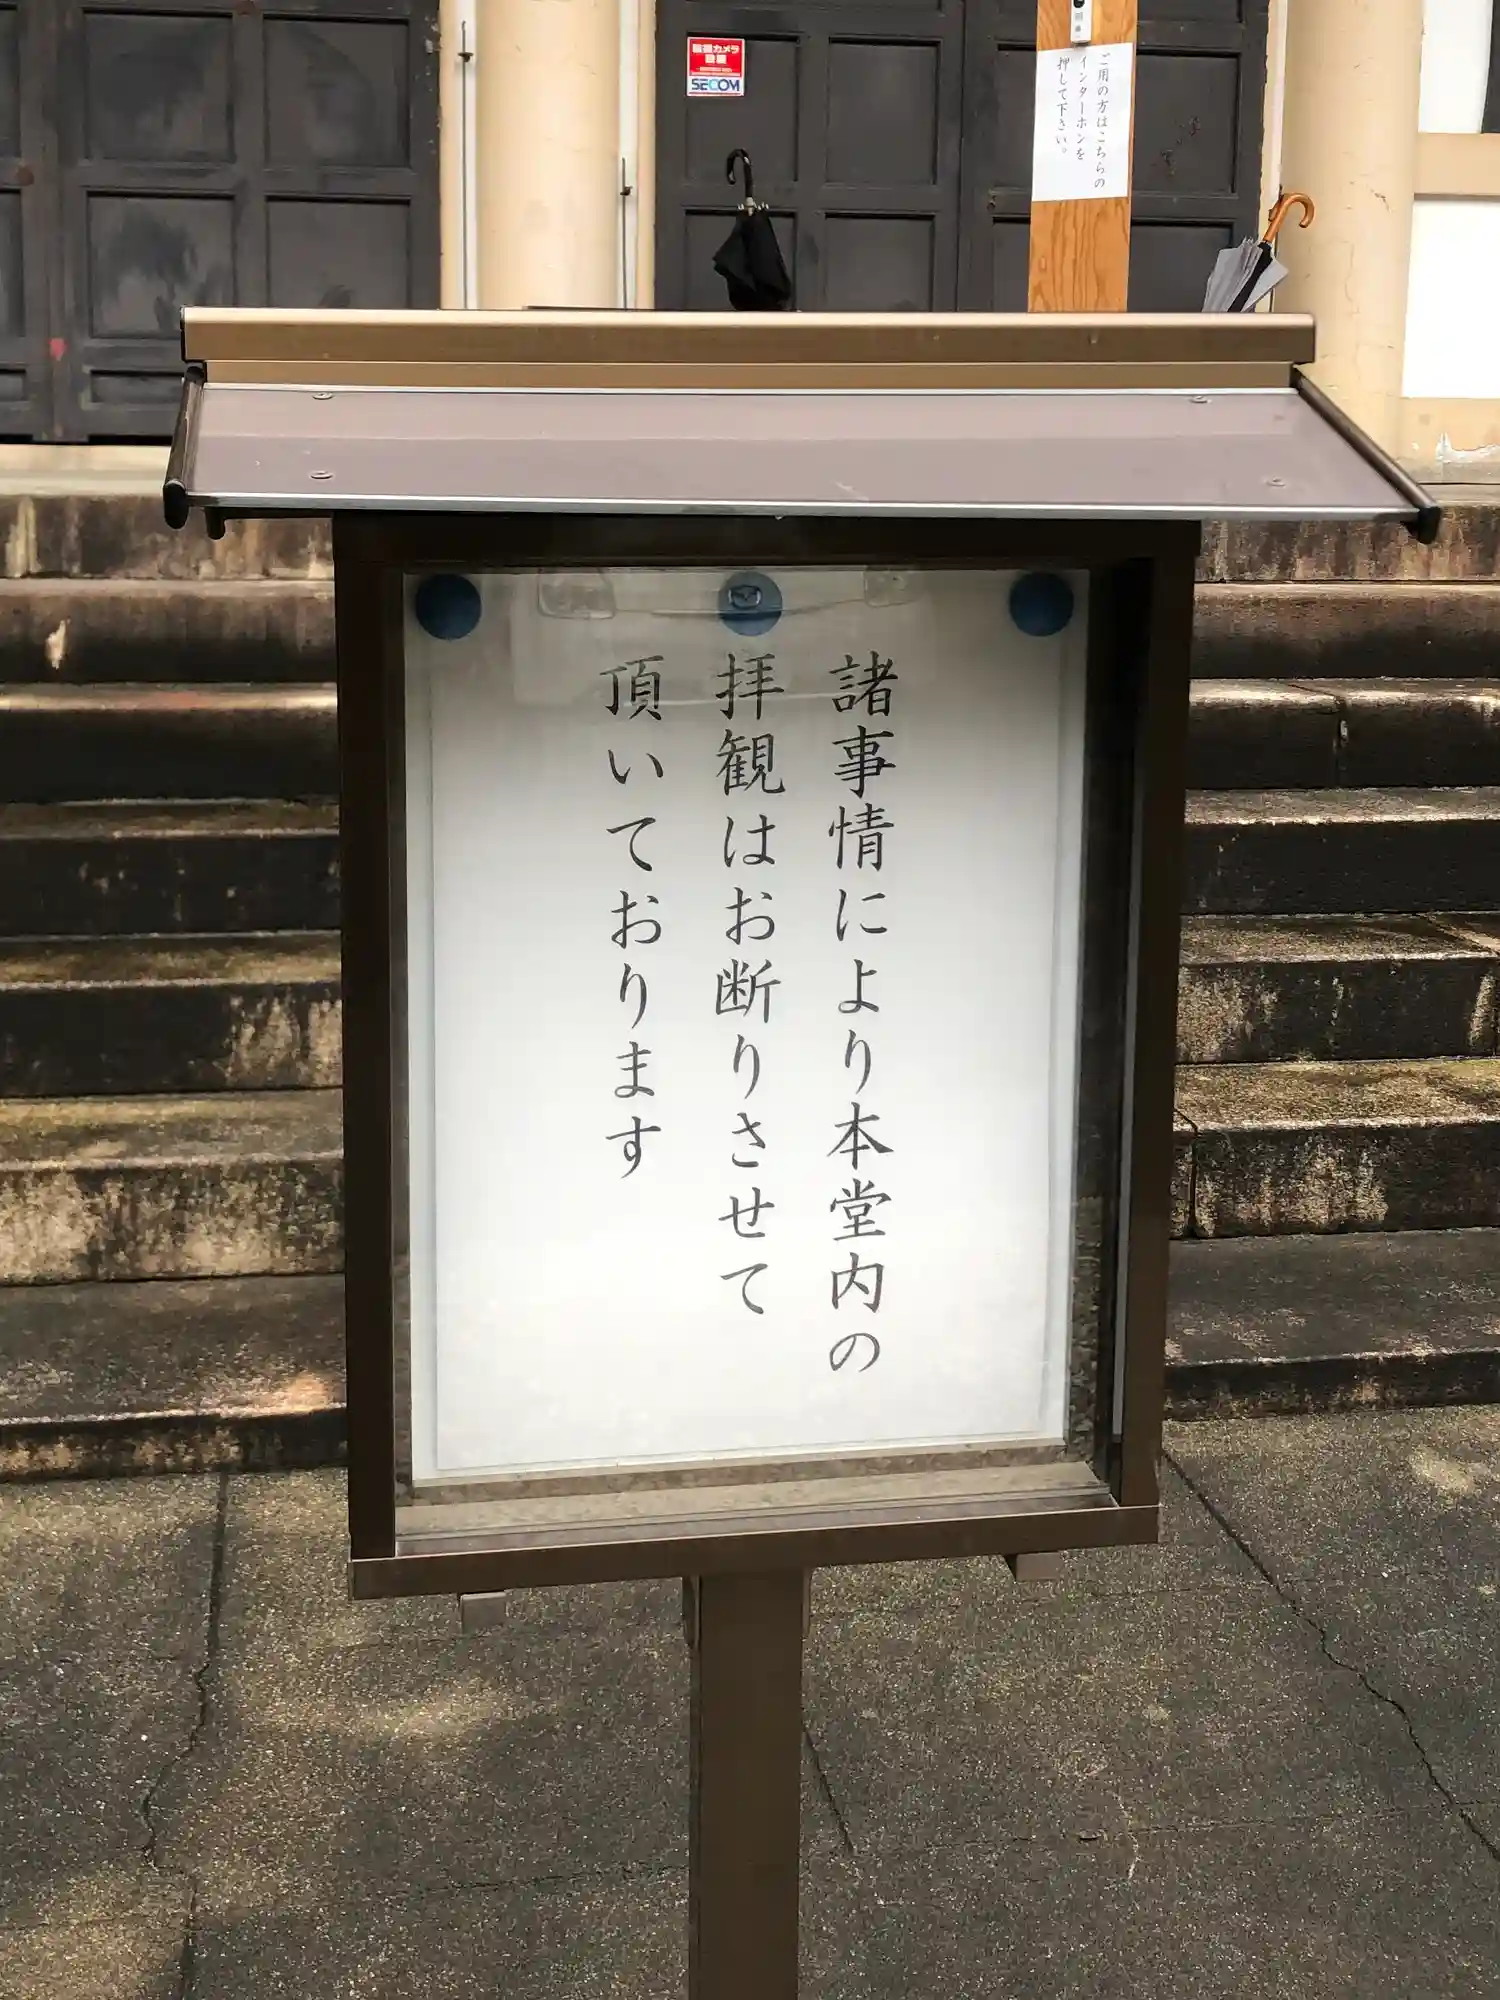 諸事情により本堂内の
拝観はお断りさせて
頂いております
ご用の方はこちらの
インターホンを
押して下さい。
防犯カメラ
設置
SECOM